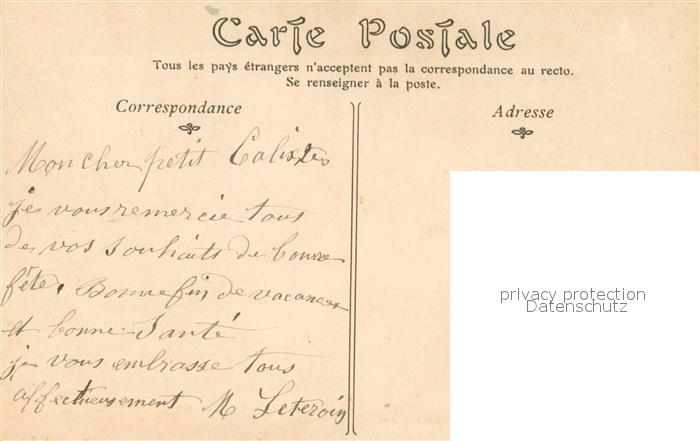 Carte Postale
Tous les pays étrangers n'acceptent pas la correspondance au recto.
Se renseigner à la poste.
Correspondance
Adresse
Mon cher petit Calixte
je vous remercie tous
de vos souhaits de bonne
fête. Bonne fin de vacances
et bonne santé
je vous embrasse tous
affectueusement M
privacy protection
Datenschutz